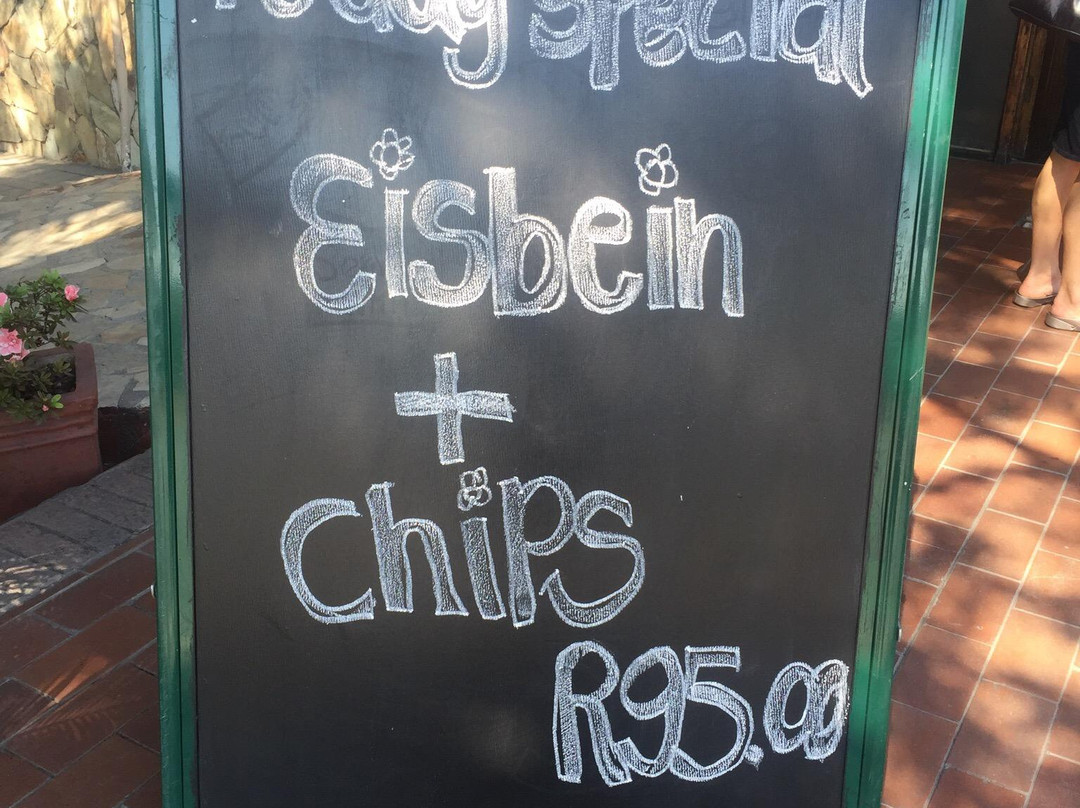 Today Special
Eisbein
+
Chips
R95.00